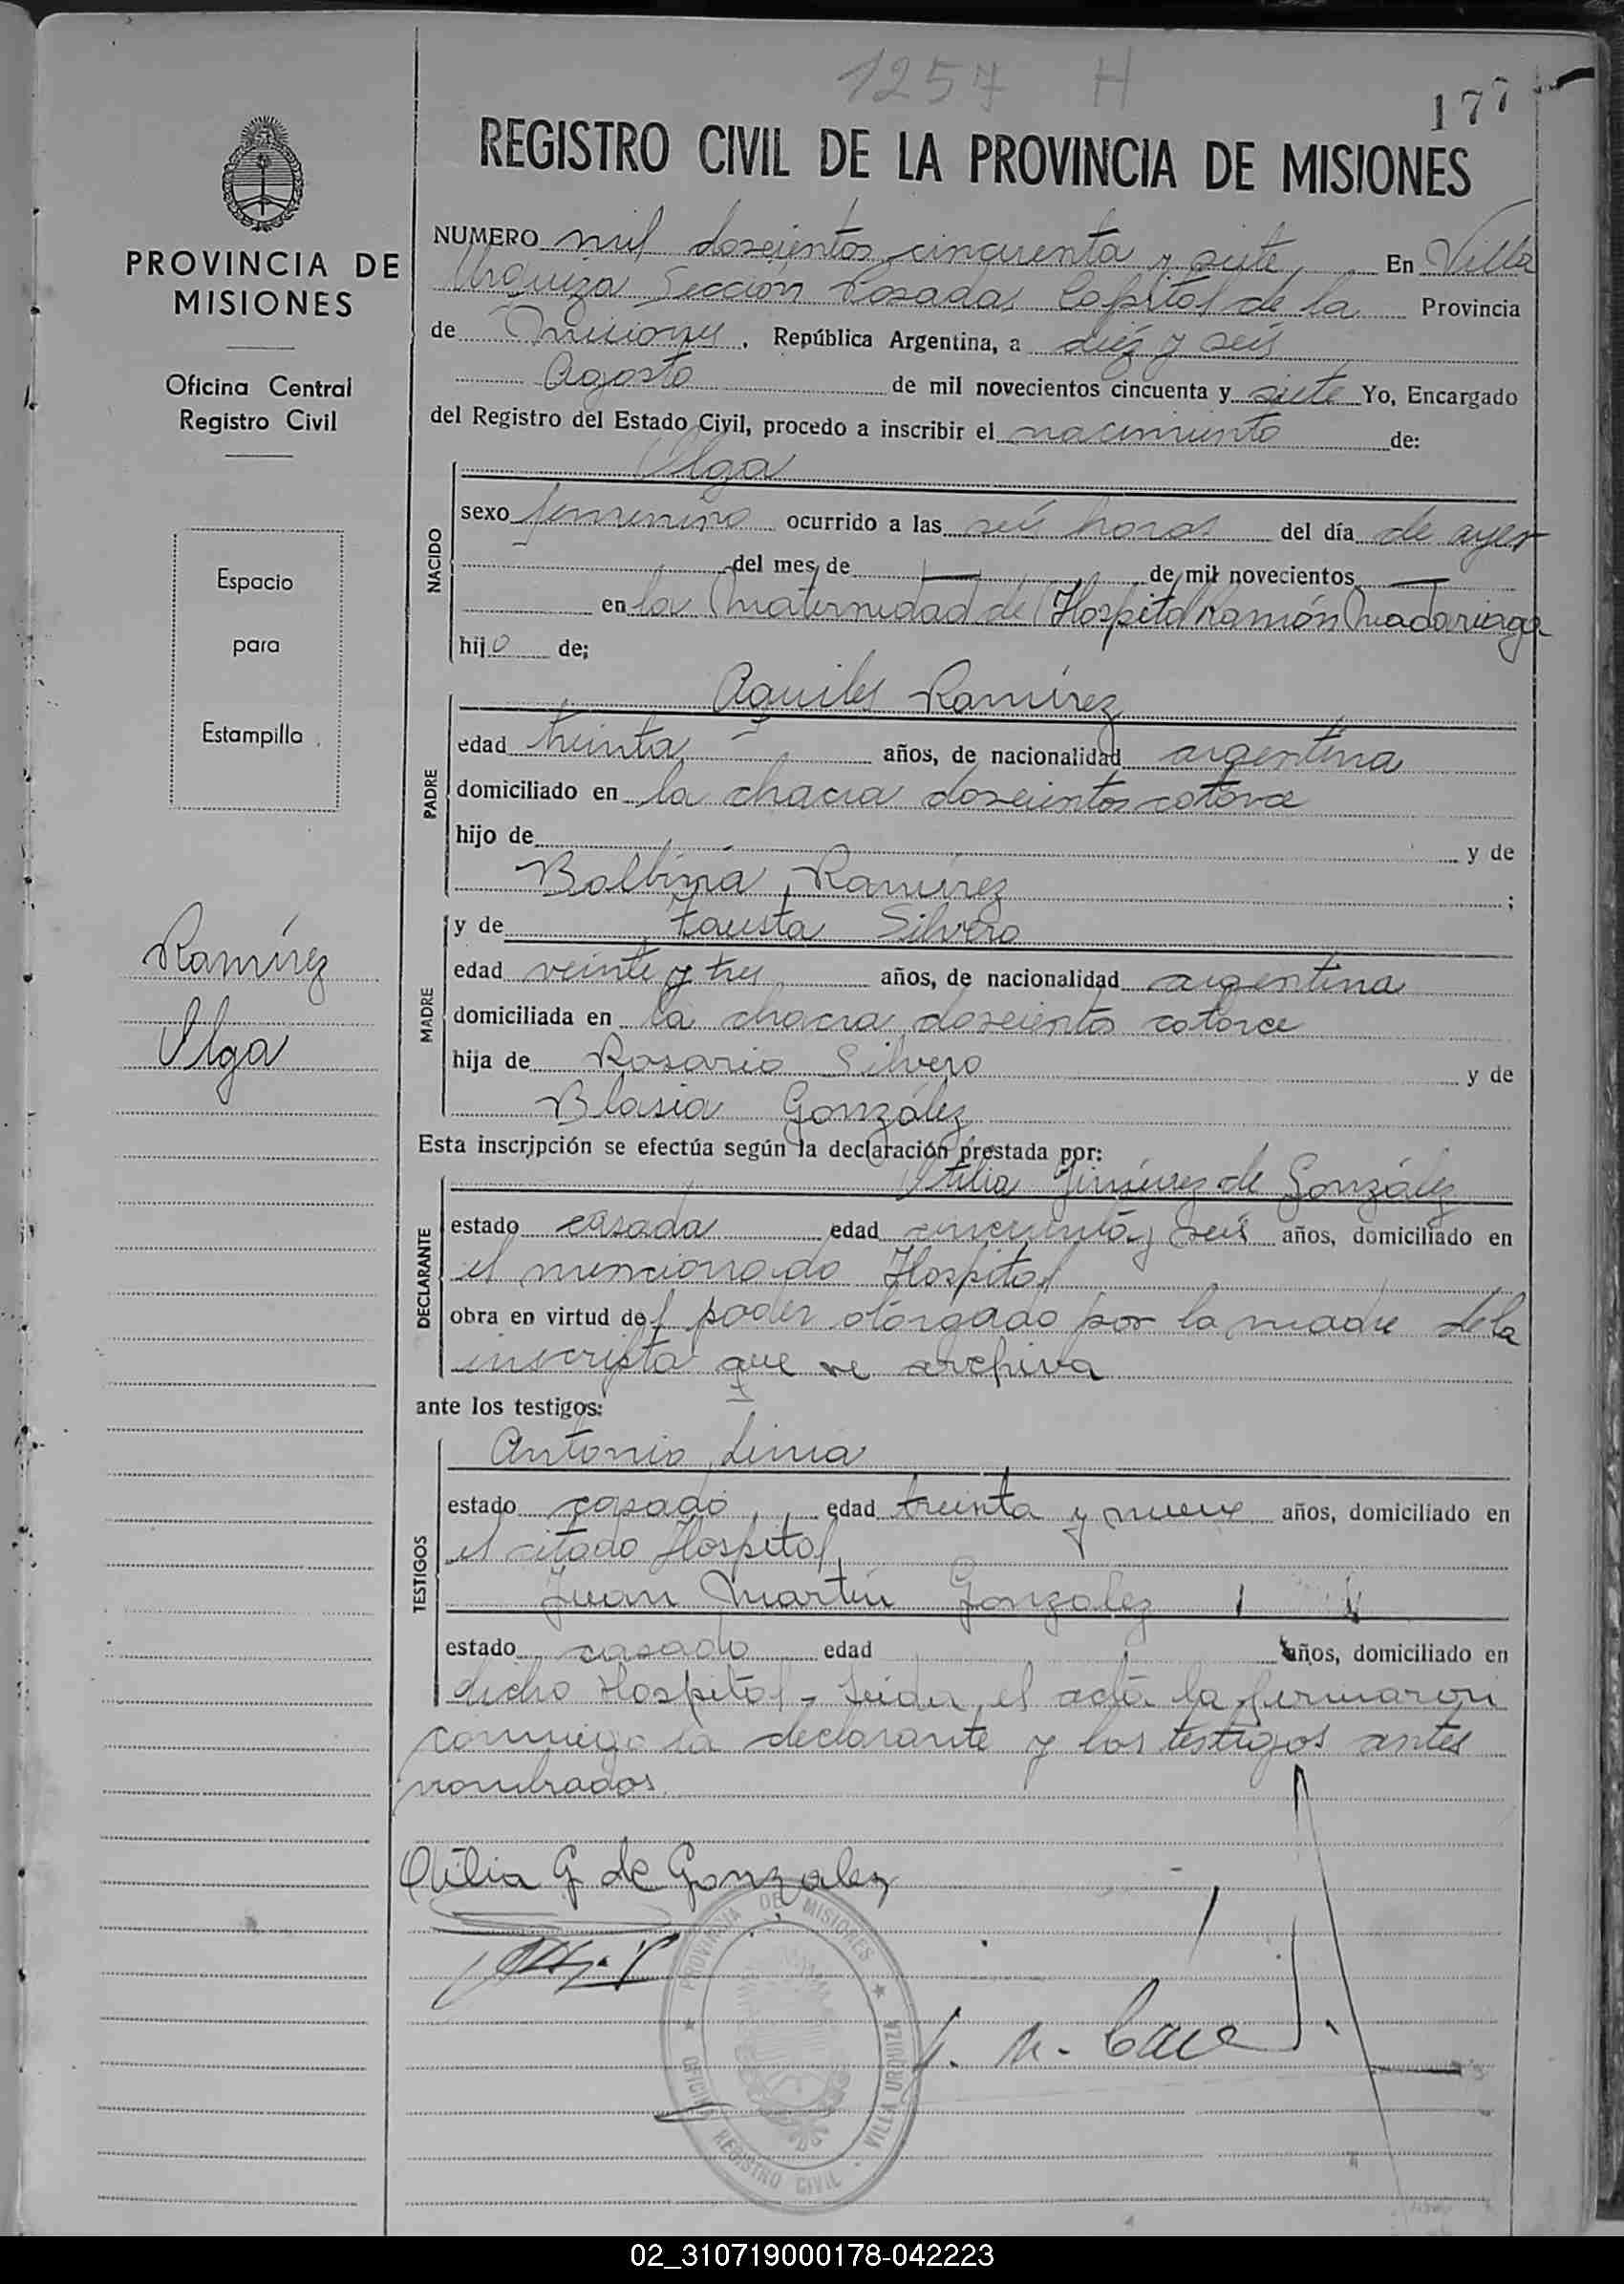 1257 H
177
REGISTRO CIVIL DE LA PROVINCIA DE MISIONES
PROVINCIA DE
MISIONES
Oficina Central
Registro Civil
Espacio
para
Estampilla
Ramírez
Olga
NUMERO mil doscientos cincuenta y siete, En Villa
Urquiza Sección Posadas Capital de la Provincia
de Misiones, República Argentina, a diez y seis
Agosto de mil novecientos cincuenta y siete Yo, Encargado
del Registro del Estado Civil, procedo a inscribir el nacimiento de:
NACIDO
Olga
sexo femenino ocurrido a las seis horas del día de ayer
del mes de — de mil novecientos —
en la Maternidad de Hospital Ramón Madariaga
hijo de;
PADRE
Aquiles Ramírez
edad treinta años, de nacionalidad argentina
domiciliado en la chacra doscientos catorce
hijo de y de
Balbina Ramírez ;
MADRE
y de Fausta Silvero
edad veinte y tres años, de nacionalidad argentina
domiciliada en la chacra doscientos catorce
hija de Rosario Silvero y de
Blasia González
Esta inscripción se efectúa según la declaración prestada por:
DECLARANTE
Otilia Giménez de González
estado casada edad cincuenta y seis años, domiciliado en
el mencionado Hospital
obra en virtud del poder otorgado por la madre de la
inscripta que se archiva
ante los testigos:
TESTIGOS
Antonio Lima
estado casado edad treinta y nueve años, domiciliado en
el citado Hospital,
Juan Martín González
estado casado edad años, domiciliado en
dicho Hospital - Leida el acta la firmaron
conmigo la declarante y los testigos antes
nombrados.
Otilia G de Gonzalez
PROVINCIA DE MISIONES
OFICINA REGISTRO CIVIL - VILLA URQUIZA
02_310719000178-042223